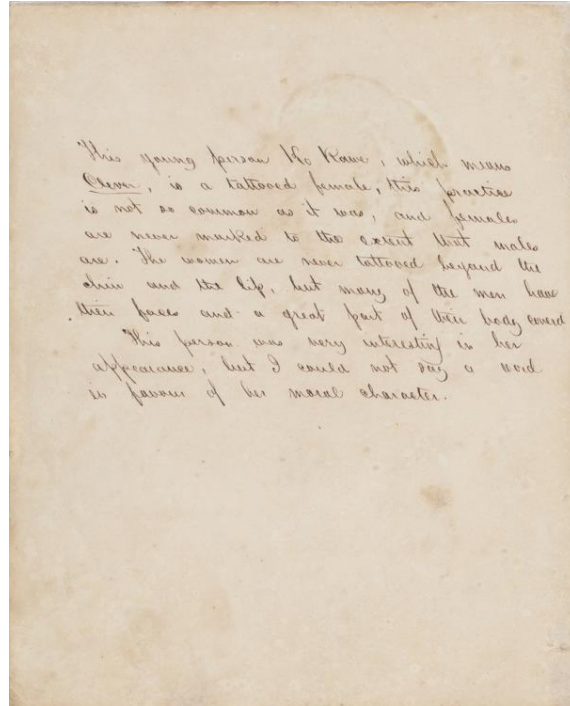 This young person Ko Rawe, which means
Clever, is a tattooed female, this practice
is not so common as it was, and females
are never marked to the extent that males
are. The women are never tattooed beyond the
chin and the lip, but many of the men have
their faces and a great part of their body coverd
This person was very interesting in her
appearance, but I could not say a word
in favour of her moral character.